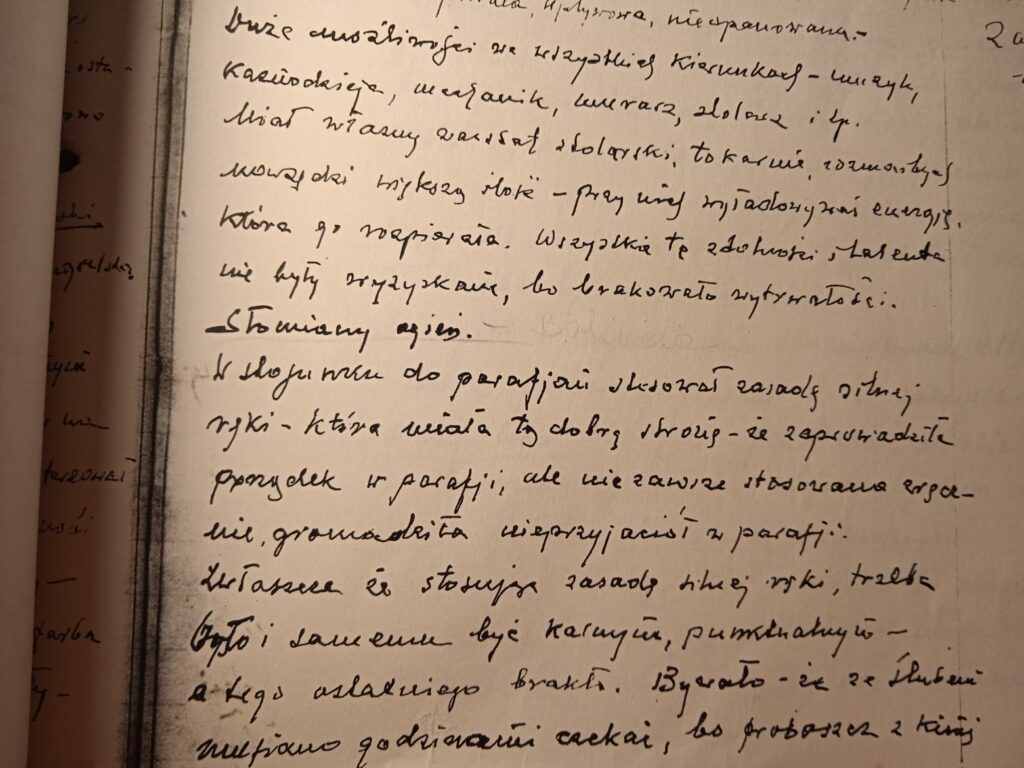 wpływowa, nieopanowana.-
Duże możliwości we wszystkich kierunkach - muzyk,
Kaznodzieja, mechanik, murarz, stolarz i tp.
Miał własny warsztat stolarski, tokarnię, rozmaitych
narzędzi większą ilość - przy nich wyładowywał energię,
która go rozpierała. Wszystkie te zdolności i talenta
nie były wyzyskane, bo brakowało wytrwałości.
Słomiany ogień.
W stosunku do parafjan stosował zasadę silnej
ręki - która miała tę dobrą stronę - że zaprowadziła
porządek w parafji, ale nie zawsze stosowana zręcz-
nie, gromadziła nieprzyjaciół w parafji.
Zwłaszcza że stosując zasadę silnej ręki, trzeba
było i samemu być karnym, punktualnym -
a tego ostatniego brakło. Bywało - że ze ślubem
musiano godzinami czekać, bo proboszcz z